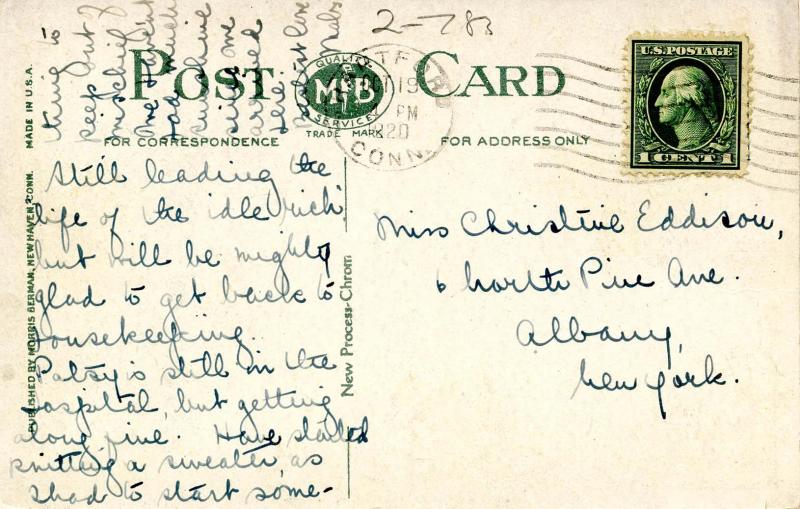 2-783
POST CARD
QUALITY
M&B
SERVICE
TRADE MARK
FOR CORRESPONDENCE
FOR ADDRESS ONLY
MADE IN U.S.A.
PUBLISHED BY MORRIS BERMAN, NEW HAVEN, CONN.
New Process-Chrom
OCT 19
PM
1920
CONN.
U.S. POSTAGE
1 CENT 1
Still leading the
life of the idle rich
but will be mighty
glad to get back to
housekeeping.
Patsy is still in the
hospital, but getting
along fine. Have started
knitting a sweater, as
I had to start some-
thing to
keep out of
mischief.
We haven't
had much
sunshine
since we
arrived
here.
love
Miss Christine Eddison,
6 North Pine Ave.
Albany,
New York.